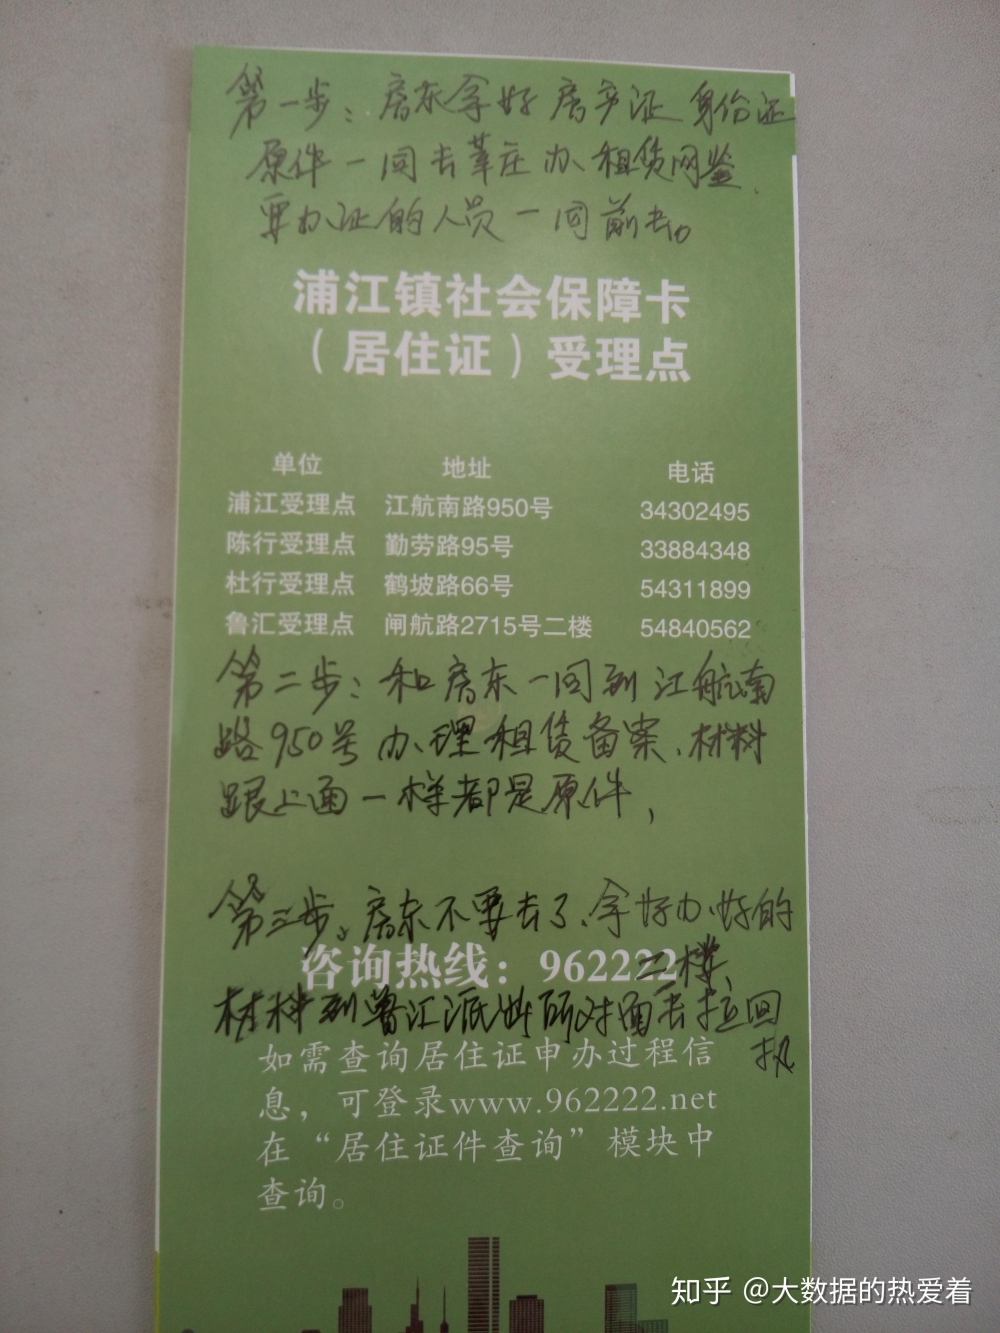 第一步：房东拿好房产证身份证
原件一同去莘庄办租赁网鉴、
要办证的人员一同前去。
浦江镇社会保障卡
（居住证）受理点
单位 地址 电话
浦江受理点 江航南路950号 34302495
陈行受理点 勤劳路95号 33884348
杜行受理点 鹤坡路66号 54311899
鲁汇受理点 闸航路2715号二楼 54840562
第二步：和房东一同到江航南
路950号办理租赁备案、材料
跟上面一样都是原件，
第三步、房东不要去了、拿好办好的
咨询热线：962222
二楼
材料到鲁汇派出所对面去拉回
执
如需查询居住证申办过程信
息，可登录www.962222.net
在“居住证件查询”模块中
查询。
知乎 @大数据的热爱着